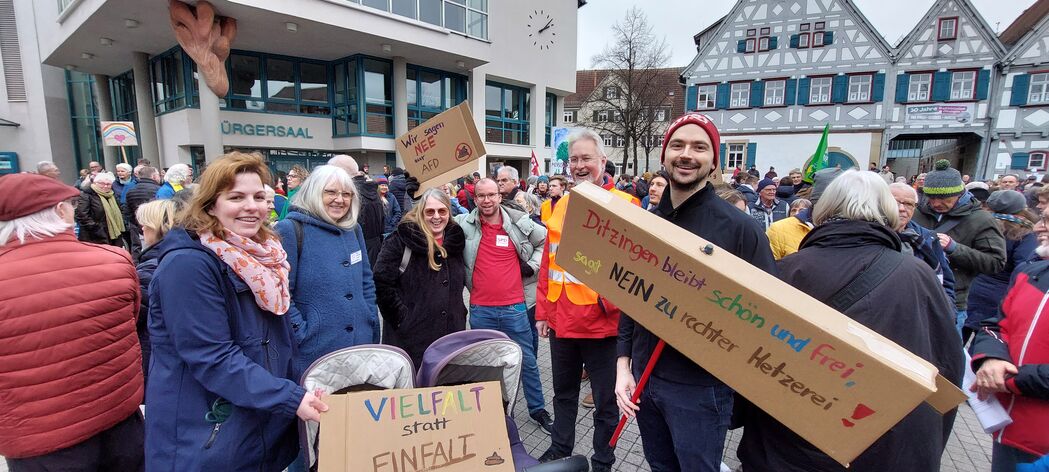 ÜRGERSAAL
Wir sagen
NEE
AFD
Ditzingen bleibt schön und frei,
sagt NEIN zu rechter Hetzerei!
VIELFALT
statt
EINFALT